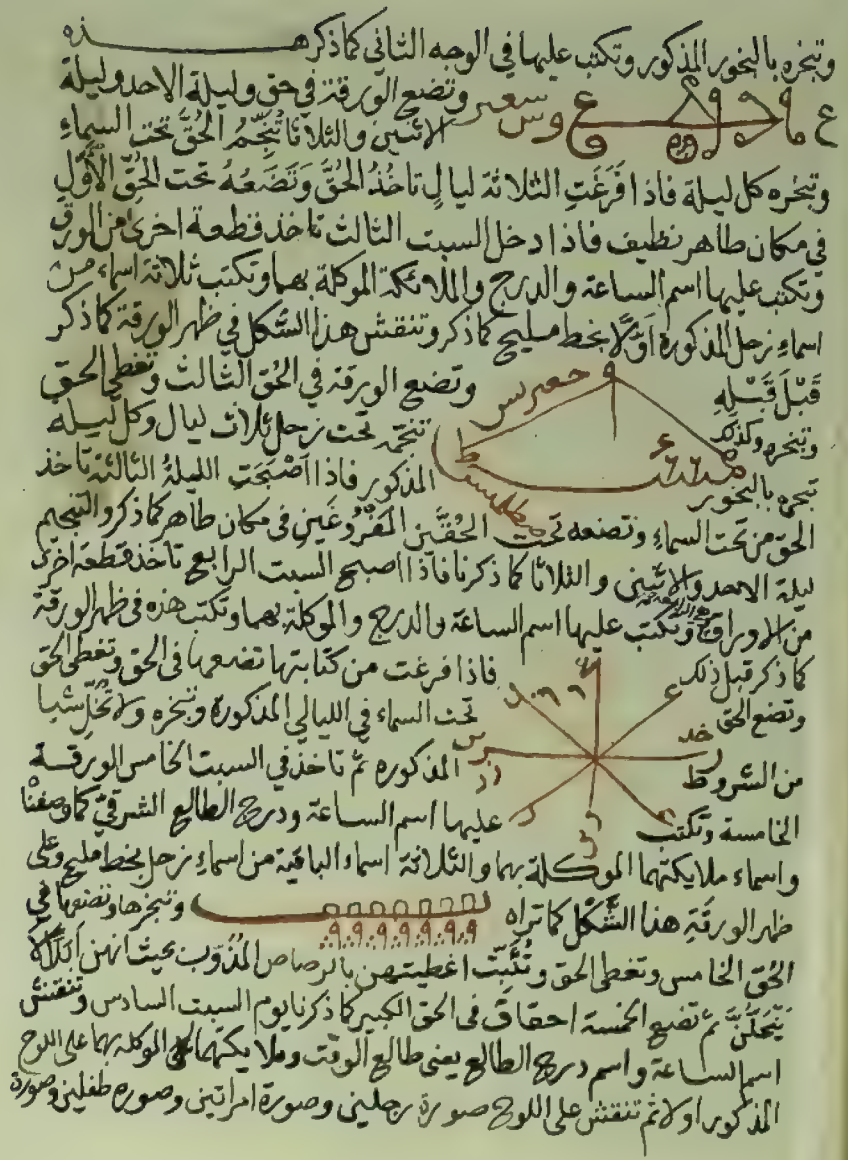 وتبخره بالبخور المذكور وتكتب عليها في الوجه الثاني كما ذكر هذه
وتضع الورقة في حق وليلة الاحد وليلة
ع
الاثنين والثلاثا تُنَجِّمُ الحُقَّ تحت السماءِ
وتبخره كل ليلة فاذا فَرَغَتِ الثلاثة ليالٍ تاخُذُ الحُقَّ وَتَضَعُهُ تحت الحُقِّ الأَوَّلِ
في مكان طاهر نظيف فاذا دخل السبت الثالث تاخذ قطعة اخرى من الورق
وتكتب عليها اسم الساعة والدرج والملائكة الموكلة بهما وتكتب ثلاثة اسماء من
اسماءِ زحل المذكورة اوّلًا بخط مليح كما ذكر وتنقش هذا الشكل في ظهر الورقة كما ذكر
قَبْلَ قَبْلِهِ
وتضع الورقة في الحُق الثالث وتغطي الحق
وتبخره وكذلك
تنجمه تحت زحل ثلاث ليال وكل ليلة
تبخره بالبخور
المذكور فاذا اَصْبَحَتِ الليلةُ الثالثة تاخذ
الحق من تحت السماءِ وتضعه تحت الحُقَّين المَفْرُوغَينِ في مكان طاهر كما ذكر والتنجيم
ليلة الاحد والاثنين والثلاثا كما ذكرنا فاذا اصبح السبت الرابع تاخذ قطعة اخرى
من الاوراق وتكتب عليها اسم الساعة والدرج والموكلة بهما وتكتب هذه في ظهر الورقة
كما ذكر قبل ذلك
فاذا فرغت من كتابتها تضعها في الحق وتغطي الحق
وتضع الحق
تحت السماء في الليالي المذكورة وتبخره ولا تُخَلِّ شيا
من الشروط
المذكوره ثم تاخذ في السبت الخامس الورقة
الخامسة وتكتب
عليها اسم الساعة ودرج الطالع الشرقيّ كما وصفنا
واسماء ملايكتهما الموكلة بهما والثلاثة اسماء الباقية من اسماءِ زحل بخط مليح وعلى
ظهر الورقَةِ هذا الشَّكْل كما تراه
وتبخرها وتضعها في
الحُقّ الخامس وتغطي الحق وتُثَبِّت اغطيتهن بالرصاص المُذَوَّب بحيث انهن
ثم تضع الخمسة احقاق في الحق الكبير كما ذكرنا يوم السبت السادس وتنقش
اسم الساعة واسم درج الطالع يعني طالع الوقت وملايكتهما الموكله بهما على اللوح
المذكور اولا ثم تنقش على اللوح صورة رجلين وصورة امراتين وصوره طفلين وصورة